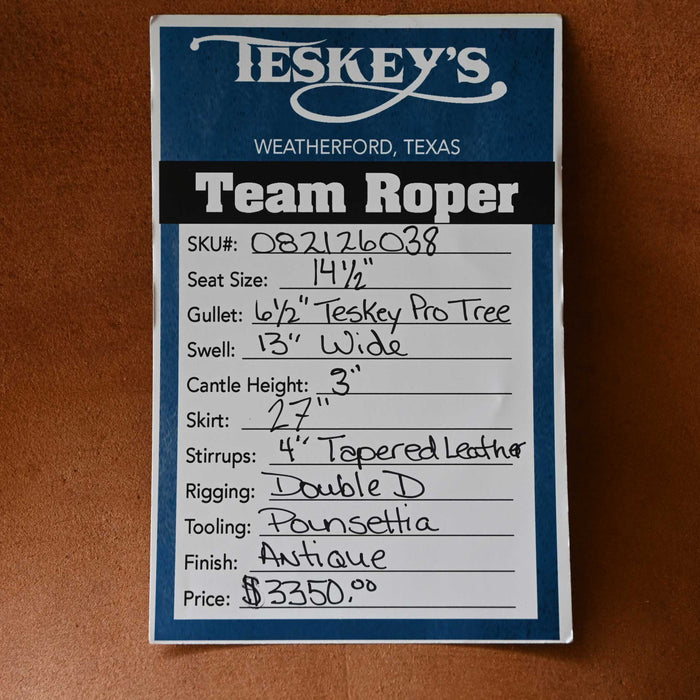 TESKEY'S
WEATHERFORD, TEXAS
Team Roper
SKU#: 082126038
Seat Size: 14 1/2"
Gullet: 6 1/2" Teskey Pro Tree
Swell: 13" Wide
Cantle Height: 3"
Skirt: 27"
Stirrups: 4" Tapered Leather
Rigging: Double D
Tooling: Pounsettia
Finish: Antique
Price: $3350.00